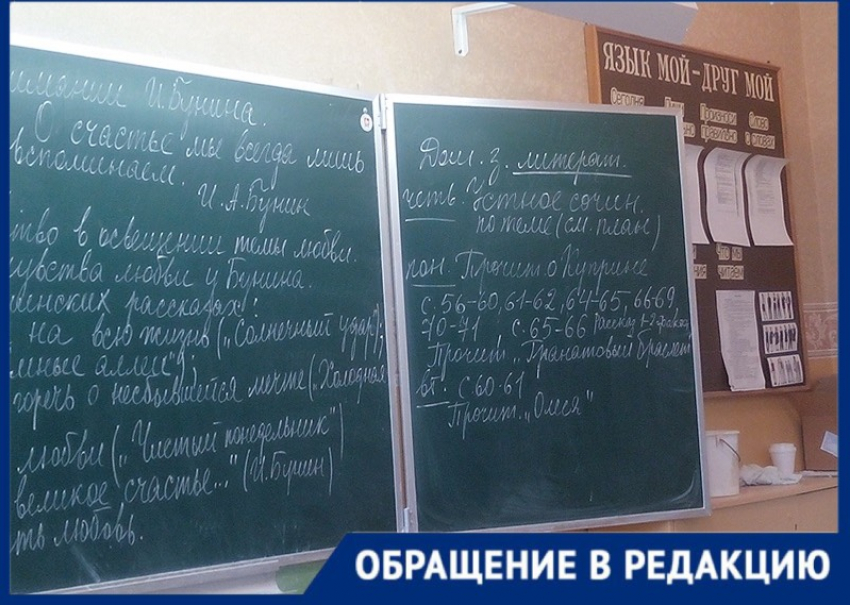 имании И. Бунина.
О счастье мы всегда лишь
вспоминаем.
И. А. Бунин
тво в освещении темы любви.
увства любви у Бунина.
енских рассказах:
на всю жизнь („Солнечный удар");
мные аллеи");
горечь о несбывшейся мечте („Холодная
любви („Чистый понедельник")
великое счастье..." (И. Бунин)
ть любовь.
Дом. з. литерат.
четв. Устное сочин.
по теме (см. план)
пон. Прочит. о Куприне
с. 56-60, 61-62, 64-65, 66-69,
70-71 с. 65-66
Прочит. „Гранатовый браслет
вт. с 60-61
Прочит. „Олеся"
ЯЗЫК МОЙ - ДРУГ МОЙ
Сегодня Произноси Слово
Правильно О словах
Что мы
читаем
ОБРАЩЕНИЕ В РЕДАКЦИЮ